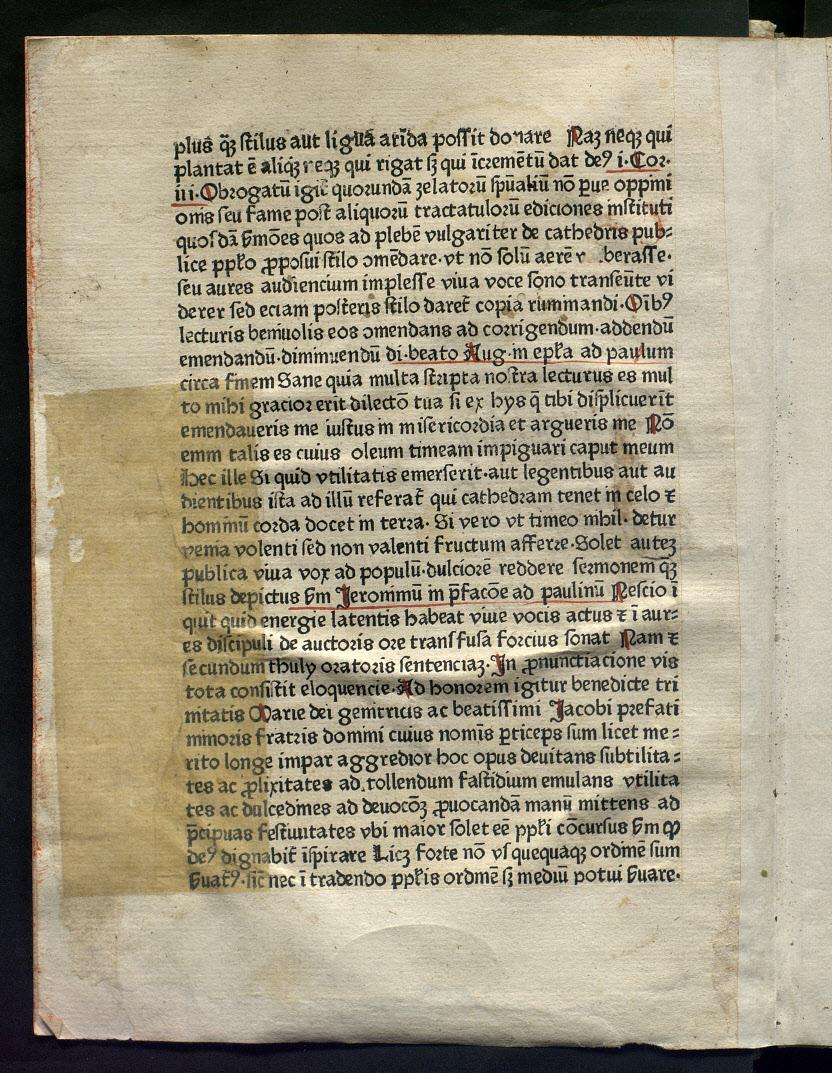 plus q̄ꝫ stilus aut liguā arīda possit donare Naꝫ neqꝫ qui
plantat ē aliqꝫ neqꝫ qui rigat sꝫ qui īcremētū dat deꝰ i·Cor·
iii·Obrogatū igit̄ quorundā zelatorū spūaliū nō ꝑue oppini
onis seu fame post aliquorū tractatulorū ediciones instituti
quosdā ẜmōes quos ad plebē vulgariter de cathedris pub⸗
lice ppło ꝓposui stilo ↄmēdare·vt nō solū aerē berasse·
seu aures audiencium implesse viua voce sono transeūte vi
derer sed eciam posteris stilo daret̄ copia ruminandi·Oībꝰ
lecturis beniuolis eos ↄmendans ad corrigendum·addendū
emendandū·diminuendū di·beato Aug·in epła ad paulum
circa finem Sane quia multa scripta nostra lecturus es mul
to mihi gracior erit dilectō tua si ex hys q̄ tibi displicuerīt
emendaueris me iustus in misericordia et argueris me Nō
enim talis es cuius oleum timeam impiguari caput meum
Hec ille Si quid vtilitatis emerserit·aut legentibus aut au
dientibus ista ad illū referat̄ qui cathedram tenet in celo ⁊
hominū corda docet in terra· Si vero vt timeo nihil· detur
venia volenti sed non valenti fructum afferre·Solet auteꝫ
publica viua vox ad populū·dulciorē reddere sermonem q̄ꝫ
stilus depictus ẜm Jeronimū in p̄facōe ad paulinū Nescio ī
quit quid energie latentis habeat viue vocis actus ⁊ ī aur⸗
es discipuli de auctoris ore transfusa forcius sonat Nam ⁊
secundum thuly oratoris sentenciaꝫ·Jn ꝓnunctiacione vis
tota consistit eloquencie·Ad honorem igitur benedicte tri
nitatis Marie dei genitricis ac beatissimi Jacobi prefati
minoris fratris domini cuius nomīs ꝑticeps sum licet me⸗
rito longe impar aggredior hoc opus deuitans subtilita⸗
tes ac ꝓlixitates ad.tollendum fastidium emulans vtilita
tes ac dulcedines ad deuocōꝫ ꝓuocandā manū mittens ad
p̄cipuas festiuitates vbi maior solet eē ppłi cōcursus ẜm ꝙ
deꝰ dignabit̄ īspirare Licꝫ forte nō vsquequaqꝫ ordinē sum
ẜuatꝰ·sic̄ nec ī tradendo ppłis ordinē sꝫ mediū potui ẜuare·